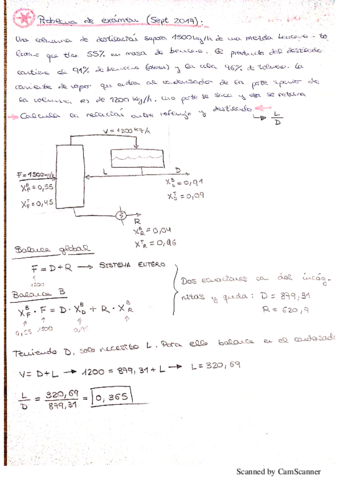 Problema de examen (Sept 2019):
Una columna de destilación separa 1500 kg/h de una mezcla benceno - to
lueno que tiene 55% en masa de benceno. El producto del destilado
contiene de 91% de benceno (masa) y la cola 96% de tolueno. La
corriente de vapor que entra al condensador de la parte superior de
la columna, es de 1200 kg/h, una parte se saca y otra se retorna
→ Calcula la relación entre reflujo y destilado ← → L/D
V = 1200 kg/h
F = 1500 kg/h
L
D
X_F^B = 0,55
X_F^T = 0,45
X_D^B = 0,91
X_D^T = 0,09
R
X_R^B = 0,04
X_R^T = 0,96
Balance global
F = D + R → SISTEMA ENTERO
1500
Balance B
X_F^B · F = D · X_D^B + R · X_R^B
0,55 1500 0,91 0,04
Dos ecuaciones dos incóg
nitas y queda: D = 879,31
R = 620,9
Teniendo D, solo necesito L. Para ello balance en el condensad.
V = D + L → 1200 = 879,31 + L → L = 320,69
L/D = 320,69/879,31 = 0,365
Scanned by CamScanner